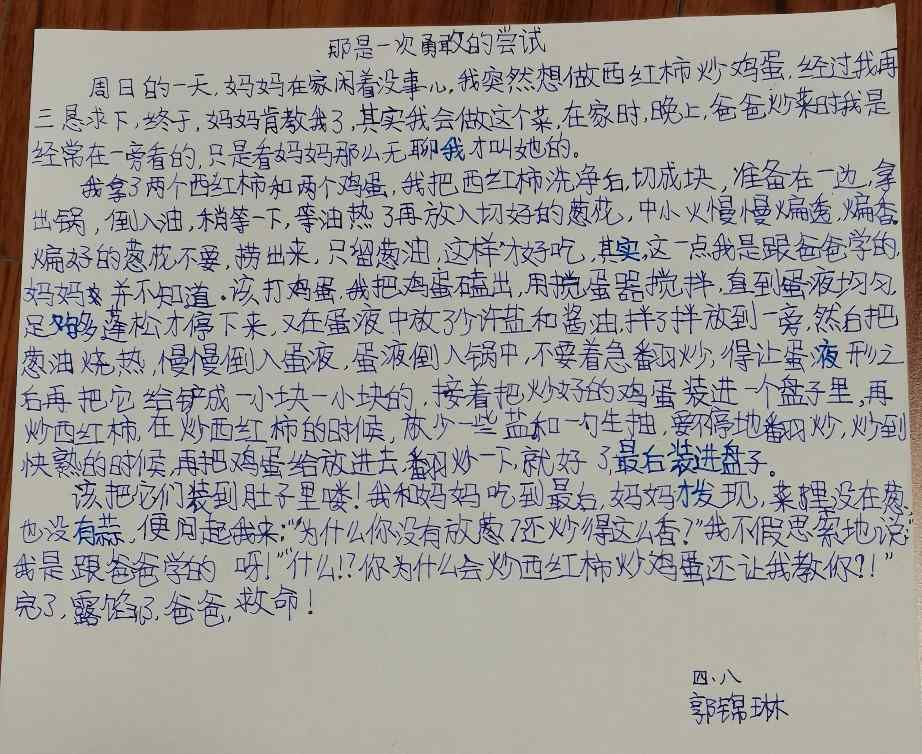 那是一次勇敢的尝试
周日的一天，妈妈在家闲着没事儿，我突然想做西红柿炒鸡蛋，经过我再
三恳求下，终于，妈妈肯教我了，其实我会做这个菜，在家时，晚上，爸爸炒菜时我是
经常在一旁看的，只是看妈妈那么无聊我才叫她的。
我拿了两个西红柿和两个鸡蛋，我把西红柿洗净后，切成块，准备在一边，拿
出锅，倒入油，稍等一下，等油热了再放入切好的葱花，中小火慢慢煸透，煸香，
煸好的葱花不要，捞出来，只留葱油，这样才好吃，其实，这一点我是跟爸爸学的，
妈妈并不知道。该打鸡蛋，我把鸡蛋磕出，用搅蛋器搅拌，直到蛋液均匀，
足够蓬松才停下来，又在蛋液中放了少许盐和酱油，拌了拌放到一旁，然后把
葱油烧热，慢慢倒入蛋液，蛋液倒入锅中，不要着急翻炒，得让蛋液形之
后再把它给铲成一小块一小块的，接着把炒好的鸡蛋装进一个盘子里，再
炒西红柿，在炒西红柿的时候，放少一些盐和一勺生抽，要不停地翻炒，炒到
快熟的时候，再把鸡蛋给放进去，翻炒一下，就好了，最后装进盘子。
该把它们装到肚子里喽！我和妈妈吃到最后，妈妈才发现，菜里没在葱，
也没有蒜，便问起我来：“为什么你没有放葱？还炒得这么香？”我不假思索地说：
“我是跟爸爸学的呀！”“什么！？你为什么会炒西红柿炒鸡蛋还让我教你？！”
完了，露馅了，爸爸，救命！
四、八
郭锦琳